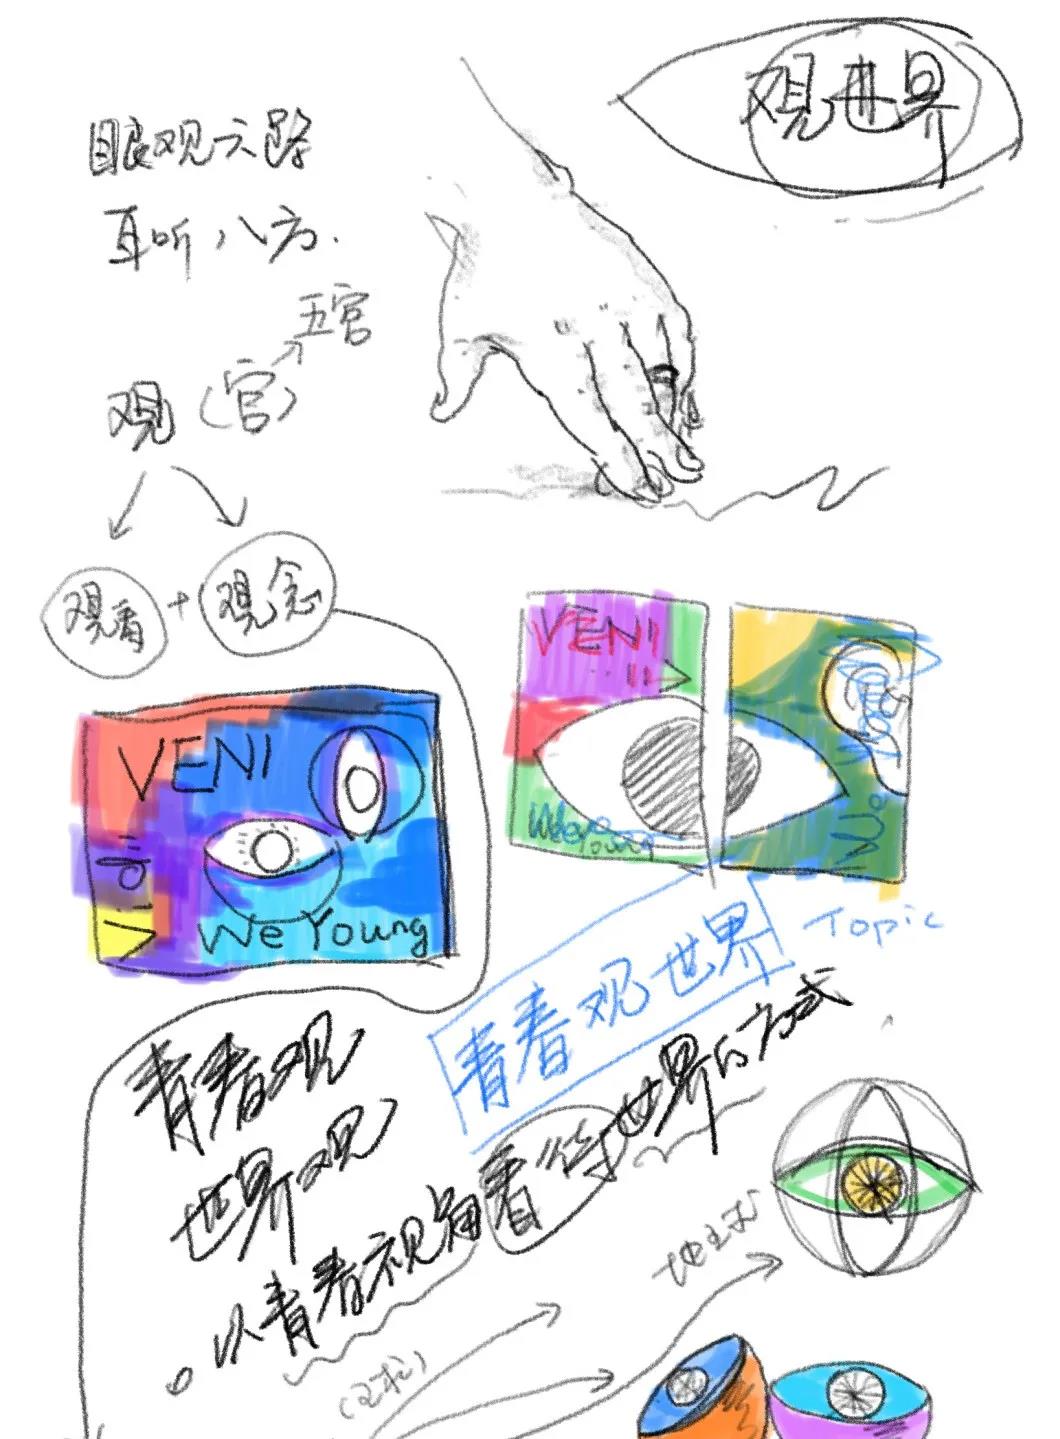 观世界
眼观六路
耳听八方.
五官
观(官)
观看+观念
VENI
Vidi
We Young
VENI
We Young
We
Topic
青春观世界
青春观
世界观
以青春视角看待世界的方式
地球